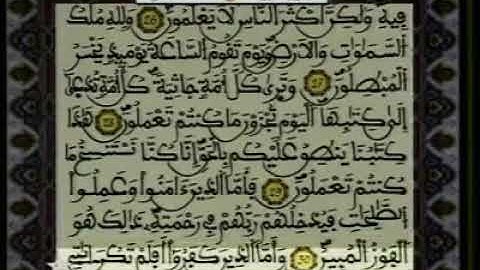 فِيهِ وَلَٰكِنَّ أَكْثَرَ النَّاسِ لَا يَعْلَمُونَ 26 وَلِلهِ مُلْكُ
السَّمَٰوَٰتِ وَالْأَرْضِ وَيَوْمَ تَقُومُ السَّاعَةُ يَوْمَئِذٍ يَخْسَرُ
الْمُبْطِلُونَ 27 وَتَرَىٰ كُلَّ أُمَّةٍ جَاثِيَةً كُلُّ أُمَّةٍ تُدْعَىٰ
إِلَىٰ كِتَٰبِهَا الْيَوْمَ تُجْزَوْنَ مَا كُنتُمْ تَعْمَلُونَ 28 هَٰذَا
كِتَٰبُنَا يَنطِقُ عَلَيْكُم بِالْحَقِّ إِنَّا كُنَّا نَسْتَنسِخُ مَا
كُنتُمْ تَعْمَلُونَ 29 فَأَمَّا الَّذِينَ ءَامَنُوا وَعَمِلُوا
الصَّٰلِحَٰتِ فَيُدْخِلُهُمْ رَبُّهُمْ فِي رَحْمَتِهِ ذَٰلِكَ هُوَ
الْفَوْزُ الْمُبِينُ 30 وَأَمَّا الَّذِينَ كَفَرُوا أَفَلَمْ تَكُنْ